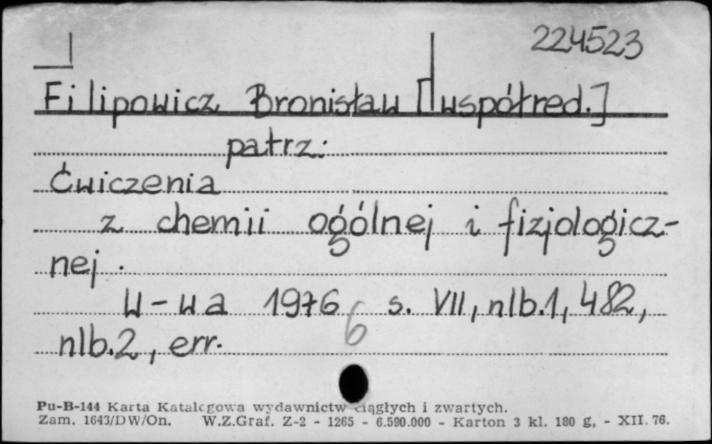 224523
Filipowicz Bronisław [współred.]
patrz:
Ćwiczenia
z chemii ogólnej i fizjologicz-
nej.
W-wa 1976 s. VII, nlb.1, 482,
nlb.2, err.
6
Pu-B-144 Karta Katalogowa wydawnictw ciągłych i zwartych.
Zam. 1643/DW/On. W.Z.Graf. Z-2 - 1265 - 6.590.000 - Karton 3 kl. 180 g, - XII. 76.